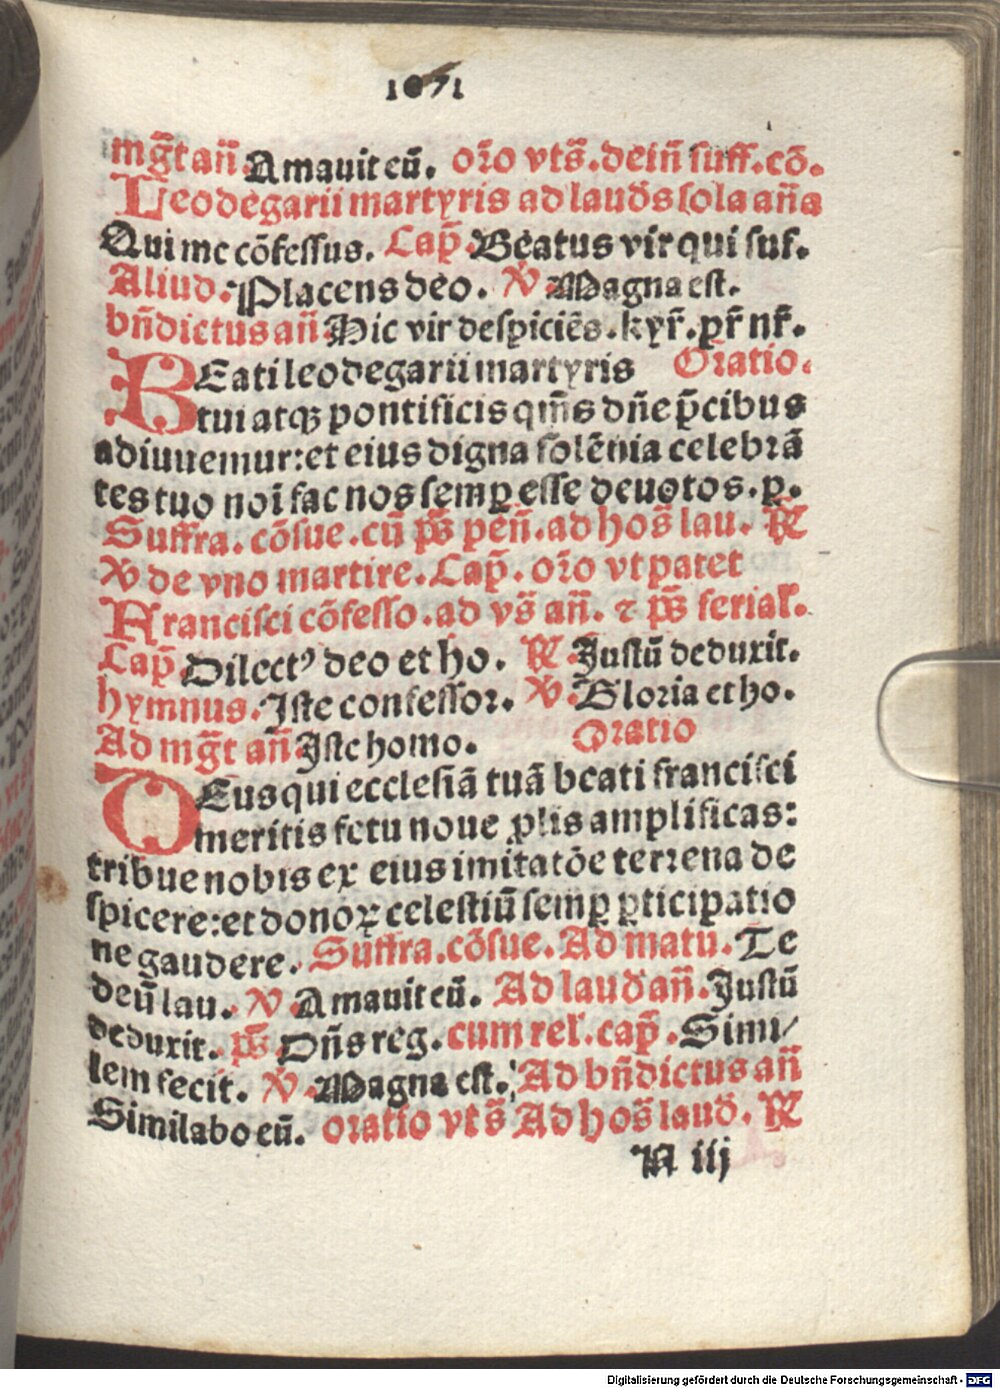 1071
mḡt an̄ Amauit eū. or̄o vts̄. dein̄ suff. cō.
Leodegarii martyris ad laud̄s sola an̄a
Qui me cōfessus. Cap̄. Beatus vir qui suf.
Aliud. Placens deo. ℣ Magna est.
bn̄dictus an̄ Hic vir despiciēs. kyr̄. pr̄ nr̄.
BEati leodegarii martyris Oratio.
tui atqꝫ pontificis qm̄s dn̄e p̄cibus
adiuuemur: et eius digna solēnia celebrā
tes tuo noī fac nos semꝑ esse deuotos. ꝑ.
Suffra. cōsue. cū ps̄ pen̄. ad hos̄ lau. ℟
℣ de vno martire. Cap̄. or̄o vt patet
Francisci cōfesso. ad vs̄ an̄. ⁊ ps̄ ferial̄.
Cap̄ Dilectꝰ deo et ho. ℟. Justū deduxit.
hymnus. Iste confessor. ℣. Gloria et ho.
Ad mḡt an̄ Iste homo. Oratio
DEus qui ecclesiā tuā beati francisci
meritis fetu noue ꝓlis amplificas:
tribue nobis ex eius imitatōe terrena de
spicere: et donoꝝ celestiū semꝑ ꝑticipatio
ne gaudere. Suffra. cōsue. Ad matu. Te
deū lau. ℣. Amauit eū. Ad laud̄ an̄. Justū
deduxit. ps̄. Dn̄s reg. cum rel̄. cap̄. Simi/
lem fecit. ℣. Magna est. Ad bn̄dictus an̄
Similabo eū. oratio vts̄ Ad hos̄ laud̄. ℟
N iij
Digitalisierung gefördert durch die Deutsche Forschungsgemeinschaft - DFG